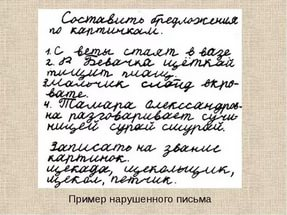 Составить предложения
по картинкам.
1. С веты стаят в вазе
2. Бевачка щёткай
тищит плащ.
3. Малочик спойд вкро-
вате.
4. Тамара Олександров-
на разговаривает сучи-
ницей сурай шурай.
Записать на звание
картинок.
щекада, щекольщик,
щекол, петчик.
Пример нарушенного письма